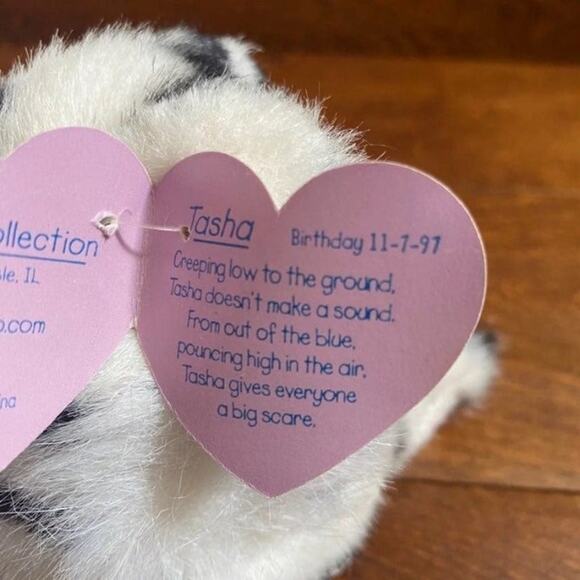 ollection
le, IL
o.com
na
Tasha
Birthday 11-7-97
Creeping low to the ground,
Tasha doesn't make a sound.
From out of the blue,
pouncing high in the air,
Tasha gives everyone
a big scare.